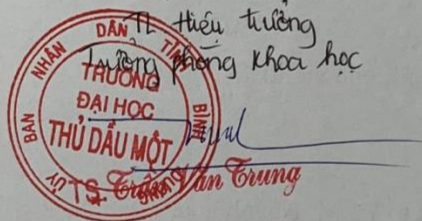 TL Hiệu trưởng
Trưởng phòng Khoa học
ỦY BAN NHÂN DÂN TỈNH BÌNH DƯƠNG
TRƯỜNG
ĐẠI HỌC
THỦ DẦU MỘT
TS. Trần Văn Trung